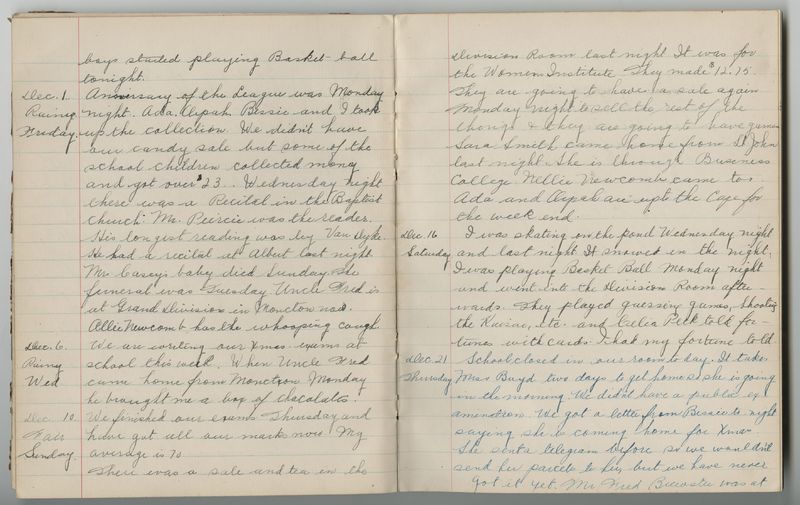 boys started playing Basket-ball
tonight.
Dec. 1. Anniversary of the League was Monday
Rainy night. Ada, Orpah Bessie and I took
Friday. up the collection. We didn't have
our candy sale but some of the
school children collected money
and got over $23. Wednesday night
there was a Recital in the Baptist
church. Mr. Peircie was the reader.
His longist reading was by Van Dyke.
He had a recital at Albert last night.
Mr Casey's baby died Sunday. The
funeral was Tuesday. Uncle Fred is
at Grand Division in Moncton now.
Allie Newcomb has the whooping cough
Dec. 6. We are writing our Xmas exams at
Rainy school this week. When Uncle Fred
Wed came home from Monctxon Monday
he brought me a box of chocolates.
Dec. 10. We finished our exams Thursday and
Fair have got all our marks now. My
Sunday. average is 70
There was a sale and tea in the
Division Room last night It was for
the Women Institute. They made $12.75.
They are going to have a sale again
Monday night to sell the rest of the
things & they are going to have games
Sara Smith came home from St John
last night. She is through Business
College Nellie Newcomb came too.
Ada and Orpah are up to the Cape for
the week end.
Dec. 16 I was skating on the pond Wednesday night
Saturday and last night It snowed in the night.
I was playing Basket Ball Monday night
and went into the Division Room after-
wards. They played guessing games, shooting
the etc. and Celia Peck told for-
tunes with cards. I had my fortune told.
Dec. 21 School closed in our room to day. It takes
Thursday Miss Boyd two days to get home so she is going
in the morning. We didn't have a public ex
amenation. We got a letter from Bessie to night
saying she is coming home for Xmas.
She sent a telegram before so we wouldn't
send her parcels to her but we have never
got it yet. Mr. Fred Brewster was at